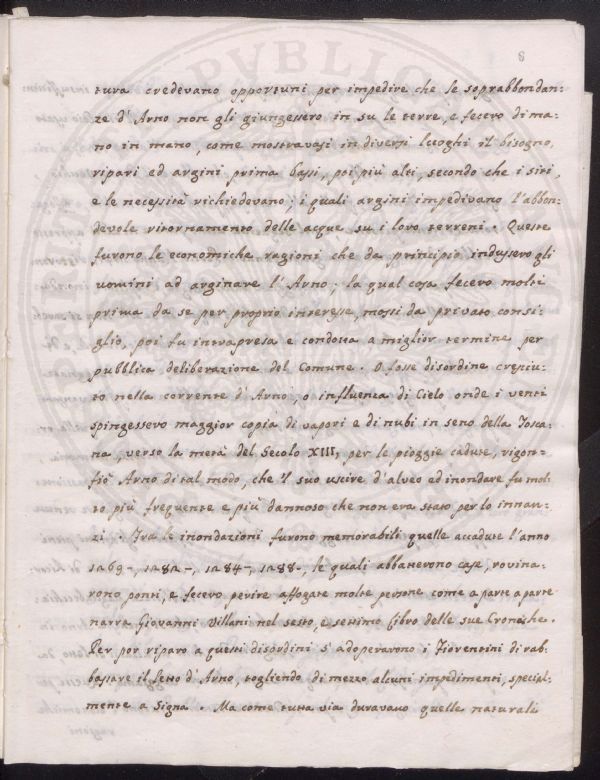 8
tura credevano opportuni per impedire che le soprabbondan:
ze d'Arno non gli giungessero in su le terre, e fecero di ma:
no in mano, come mostravasi in diversi luoghi il bisogno,
ripari ed argini prima bassi, poi più alti, secondo che i siti,
e le necessità richiedevano; i quali argini impedivano l'abbon:
devole ritornamento delle acque su i loro terreni. Queste
furono le economiche ragioni che da principio indussero gli
uomini ad arginare l'Arno; la qual cosa fecero molti
prima da se per proprio interesse, mossi da privato consi:
glio, poi fu intrapresa e condotta a miglior termine per
pubblica deliberazione del Comune. O fosse disordine cresciu:
to nella corrente d'Arno, o influenza di Cielo onde i venti
spingessero maggior copia di vapori e di nubi in seno della Tosca:
na, verso la metà del Secolo XIII, per le pioggie cadute, rigon:
fiò Arno di tal modo, che 'l suo uscire d'alveo ed inondare fu mol:
to più frequente e più dannoso che non era stato per lo innan:
zi. Tra le inondazioni furono memorabili quelle accadute l'anno
1269-, 1282-, 1284-, 1288-, le quali abbatterono case, rovina:
rono ponti, e fecero perire affogate molte persone come a parte a parte
narra Giovanni Villani nel sesto, e settimo libro delle sue Croniche.
Per por riparo a questi disordini s'adoperarono i Fiorentini di rab:
bassare il letto d'Arno, togliendo di mezzo alcuni impedimenti, special:
mente a Signa. Ma come tutta via duravano quelle naturali
ragioni
PVBLICA